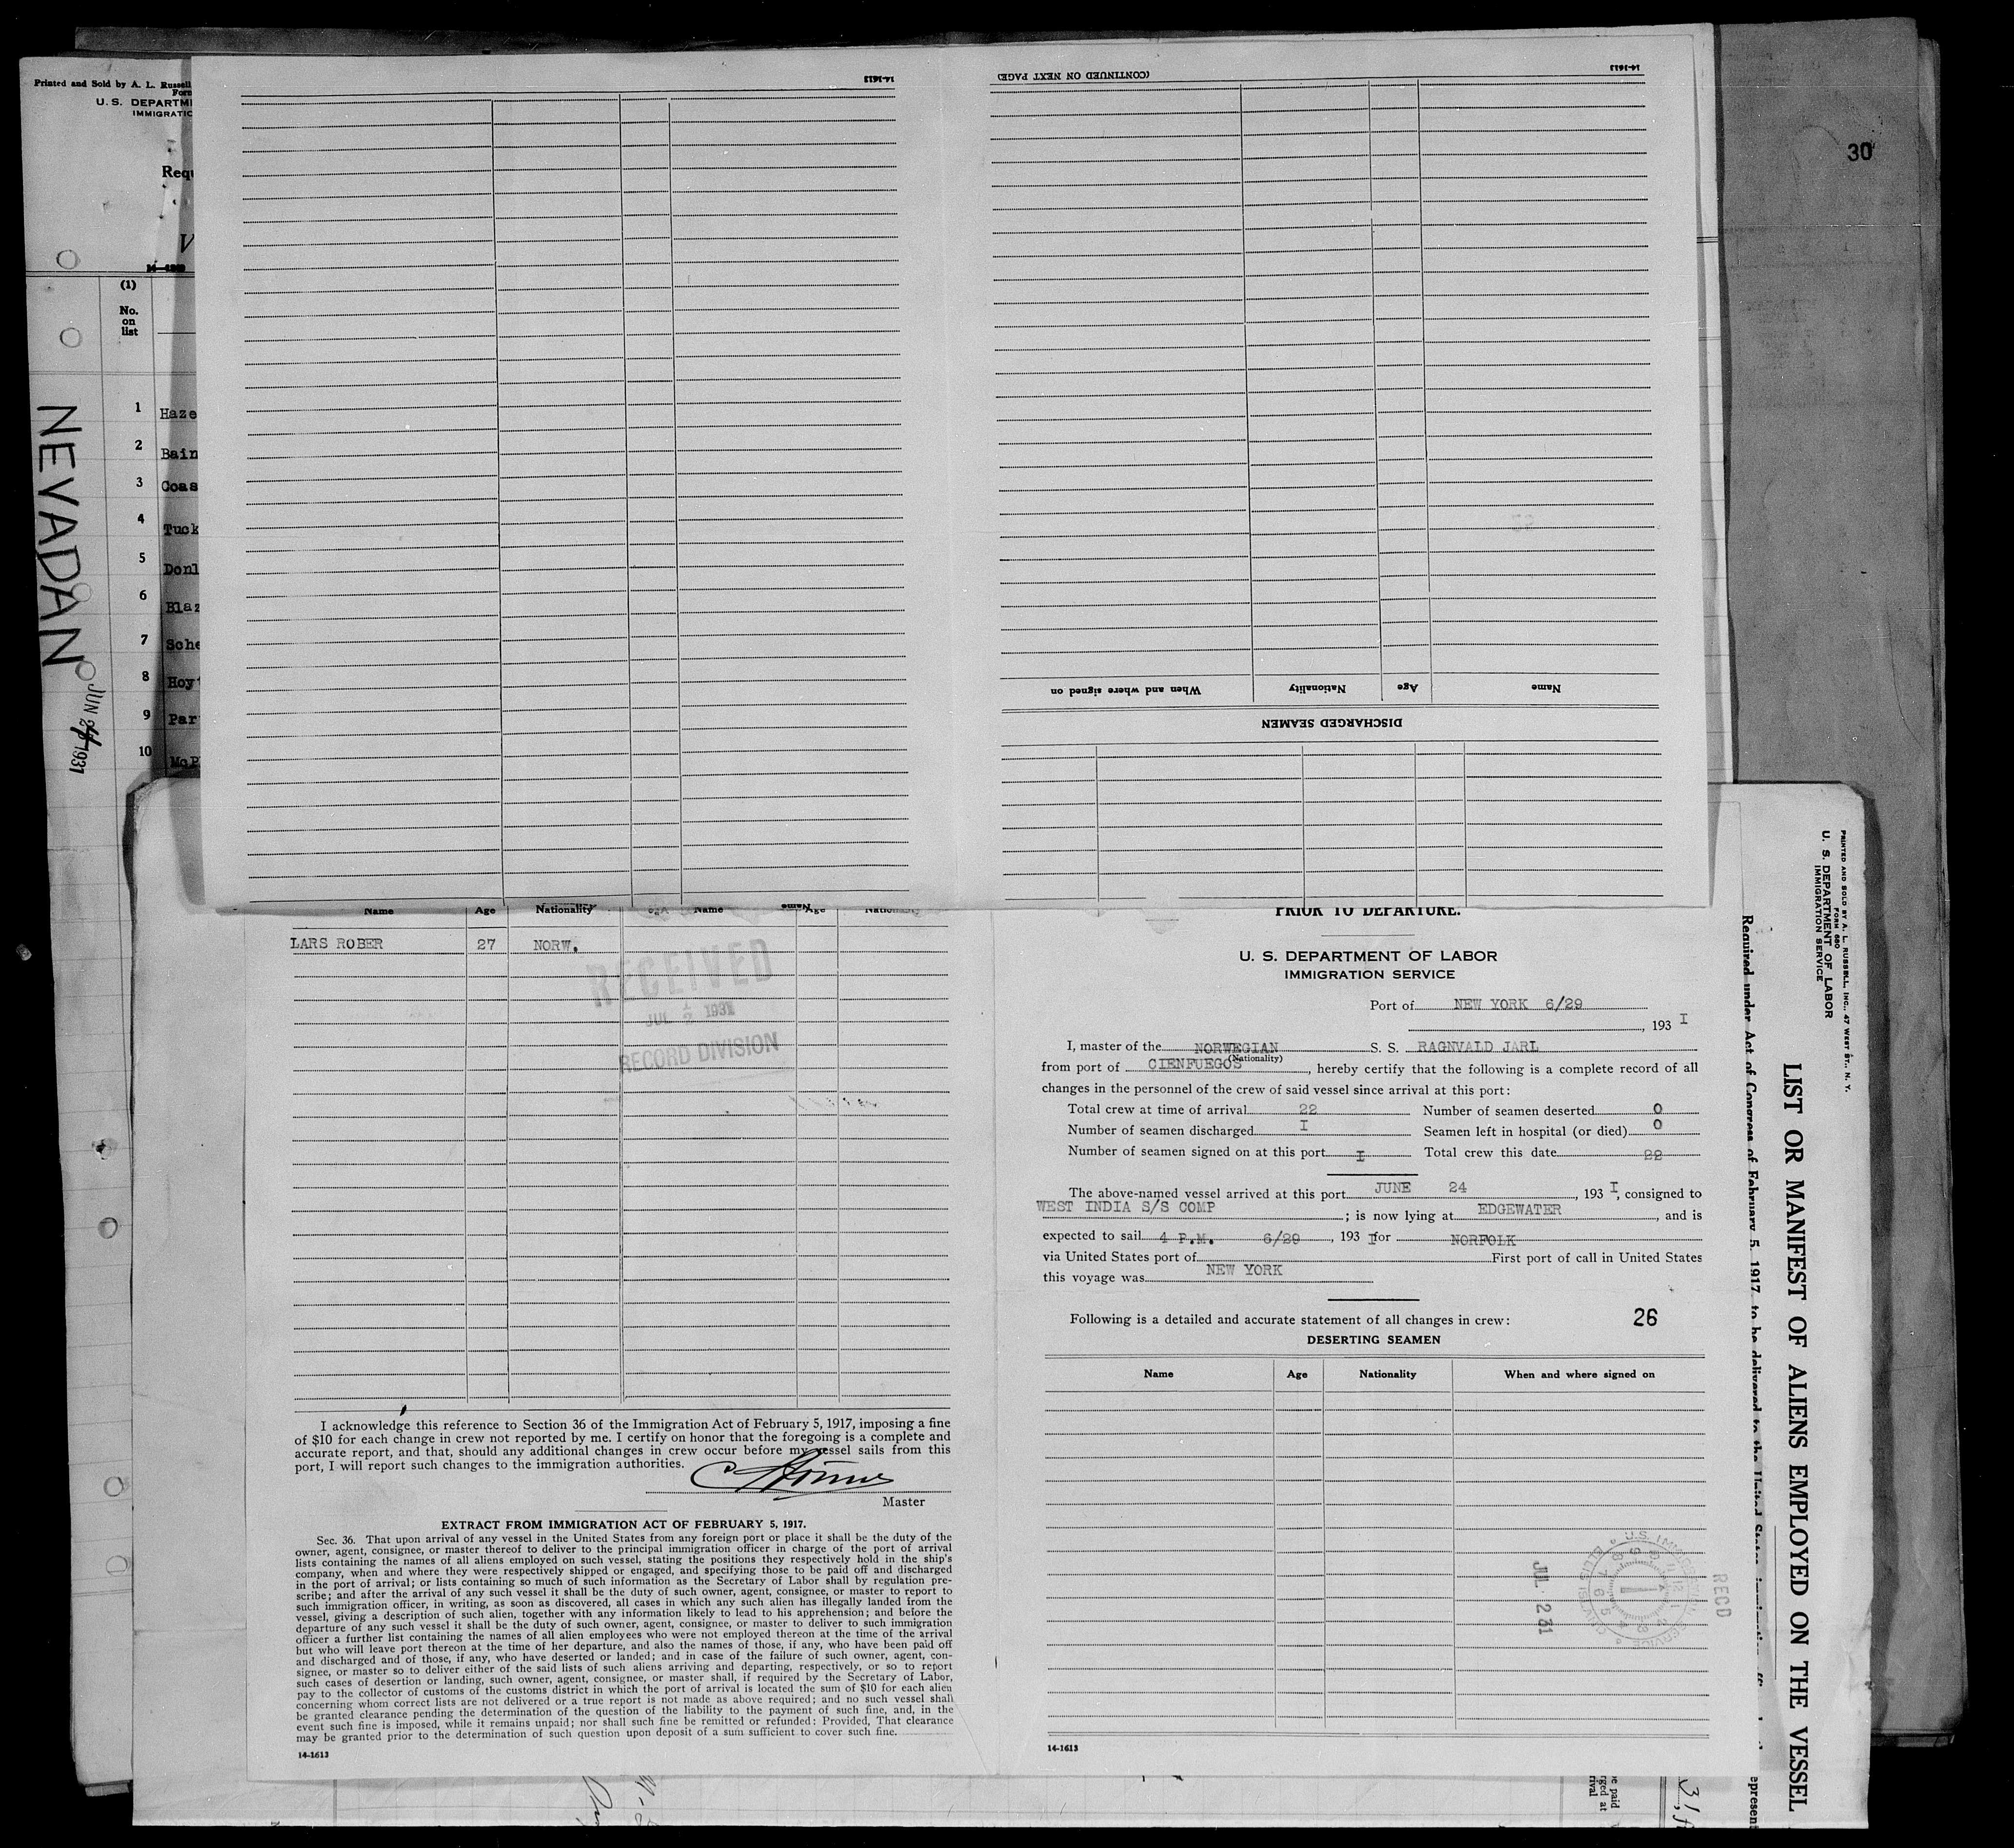 Printed and Sold by A. L. Russell
Form
U. S. DEPARTM
IMMIGRATIO
Requ
V
(1)
No.
on
list
1 Haze
2 Bain
3 Coas
4 Tuck
5 Donl
6 Blaz
7 Sche
8 Hoyt
9 Par
10 McP
NEVADAN
JUN 24 1931
14-1613
(CONTINUED ON NEXT PAGE)
14-1613
30
When and where signed on Nationality Age Name
DISCHARGED SEAMEN
Name Age Nationality Name Age Nationality
LARS ROBER 27 NORW.
RECEIVED
JUL 2 1931
RECORD DIVISION
I acknowledge this reference to Section 36 of the Immigration Act of February 5, 1917, imposing a fine
of $10 for each change in crew not reported by me. I certify on honor that the foregoing is a complete and
accurate report, and that, should any additional changes in crew occur before my vessel sails from this
port, I will report such changes to the immigration authorities.
Master
EXTRACT FROM IMMIGRATION ACT OF FEBRUARY 5, 1917.
Sec. 36. That upon arrival of any vessel in the United States from any foreign port or place it shall be the duty of the
owner, agent, consignee, or master thereof to deliver to the principal immigration officer in charge of the port of arrival
lists containing the names of all aliens employed on such vessel, stating the positions they respectively hold in the ship's
company, when and where they were respectively shipped or engaged, and specifying those to be paid off and discharged
in the port of arrival; or lists containing so much of such information as the Secretary of Labor shall by regulation pre-
scribe; and after the arrival of any such vessel it shall be the duty of such owner, agent, consignee, or master to report to
such immigration officer, in writing, as soon as discovered, all cases in which any such alien has illegally landed from the
vessel, giving a description of such alien, together with any information likely to lead to his apprehension; and before the
departure of any such vessel it shall be the duty of such owner, agent, consignee, or master to deliver to such immigration
officer a further list containing the names of all alien employees who were not employed thereon at the time of the arrival
but who will leave port thereon at the time of her departure, and also the names of those, if any, who have been paid off
and discharged and of those, if any, who have deserted or landed; and in case of the failure of such owner, agent, con-
signee, or master so to deliver either of the said lists of such aliens arriving and departing, respectively, or so to report
such cases of desertion or landing, such owner, agent, consignee, or master shall, if required by the Secretary of Labor,
pay to the collector of customs of the customs district in which the port of arrival is located the sum of $10 for each alien
concerning whom correct lists are not delivered or a true report is not made as above required; and no such vessel shall
be granted clearance pending the determination of the question of the liability to the payment of such fine, and, in the
event such fine is imposed, while it remains unpaid; nor shall such fine be remitted or refunded: Provided, That clearance
may be granted prior to the determination of such question upon deposit of a sum sufficient to cover such fine.
14-1613
PRIOR TO DEPARTURE.
U. S. DEPARTMENT OF LABOR
IMMIGRATION SERVICE
Port of NEW YORK 6/29
, 193 I
I, master of the NORWEGIAN S. S. RAGNVALD JARL
(Nationality)
from port of CIENFUEGOS, hereby certify that the following is a complete record of all
changes in the personnel of the crew of said vessel since arrival at this port:
Total crew at time of arrival 22 Number of seamen deserted 0
Number of seamen discharged I Seamen left in hospital (or died) 0
Number of seamen signed on at this port I Total crew this date 22
The above-named vessel arrived at this port JUNE 24, 193 I, consigned to
WEST INDIA S/S COMP ; is now lying at EDGEWATER, and is
expected to sail 4 P.M. 6/29, 193 I for NORFOLK
via United States port of First port of call in United States
this voyage was NEW YORK
Following is a detailed and accurate statement of all changes in crew: 26
DESERTING SEAMEN
Name Age Nationality When and where signed on
JUL 2 31
RECD
U.S. IMMIGRATION SERVICE
ELLIS ISLAND
14-1613
PRINTED AND SOLD BY A. L. RUSSELL, INC., 47 WEST ST., N. Y.
FORM 680
U. S. DEPARTMENT OF LABOR
IMMIGRATION SERVICE
LIST OR MANIFEST OF ALIENS EMPLOYED ON THE VESSEL
Required under Act of Congress of February 5, 1917, to be delivered to the United States immigration
epresent
be paid
rged at
rival